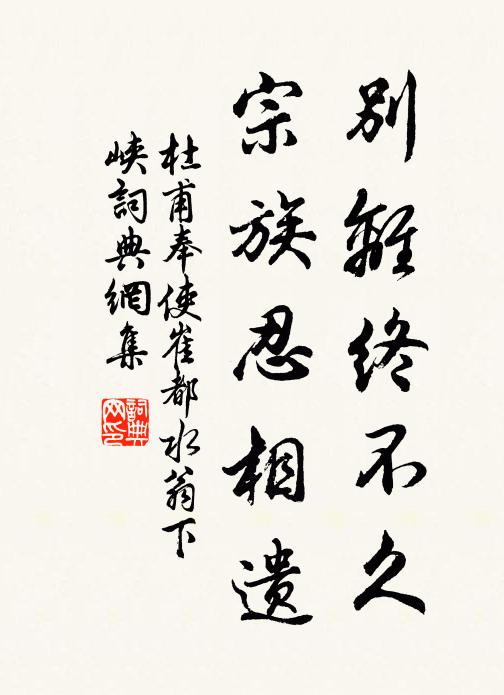 別離終不久
宗族忍相遺
杜甫奉使崔都水翁下
峽詞典網集
詞典
网印